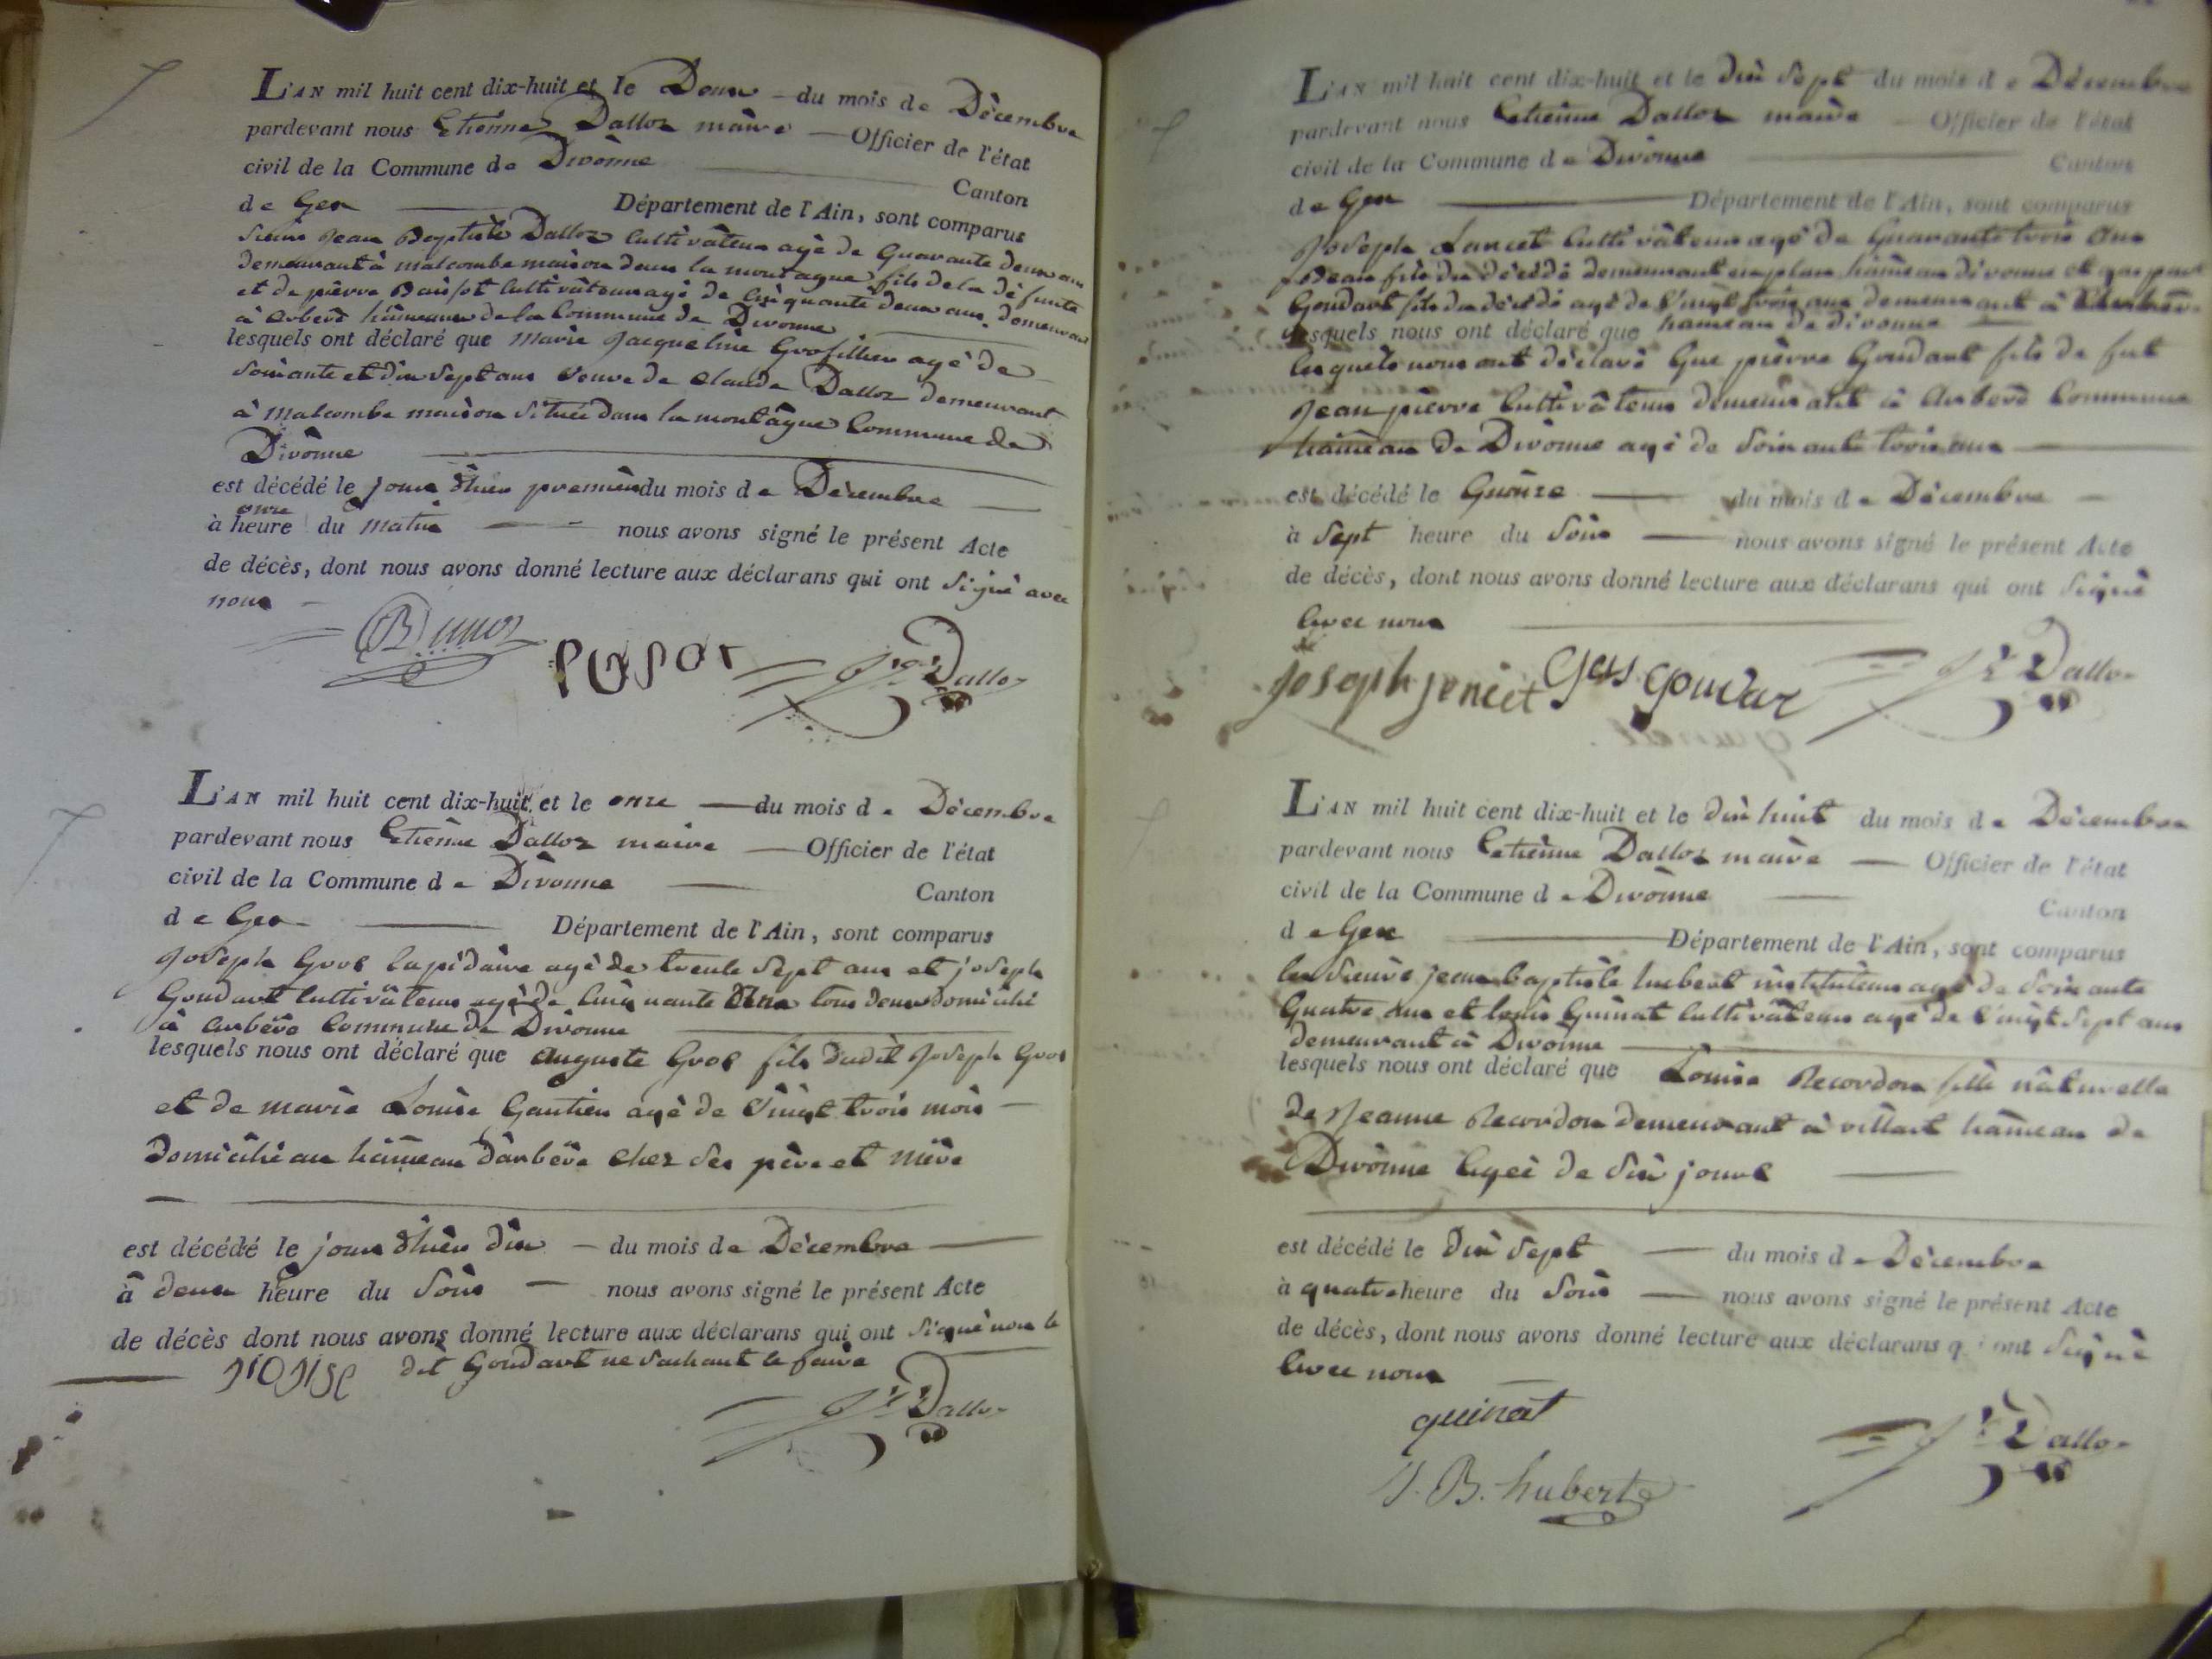 L'AN mil huit cent dix-huit et le Deux du mois de Décembre
pardevant nous Etienne Dalloz maire Officier de l'état
civil de la Commune de Divonne
Canton
de Gex Département de l'Ain, sont comparus
Sieur Jean Baptiste Dalloz Cultivâteur agé de Quarante deux ans
demeurant à malcombe maison dans la montagne fils de la défunte
et de pierre cultivâteur agé de Cinquante deux ans demeurant
à arbere hâmeau de la Commune de Divonne
lesquels ont déclaré que Marie Jacqueline Grosfillex agé de
Soixante et dix Sept ans Veuve de Claude Dalloz demeurant
à Malcombe maison Située dans la montâgne Commune de
Divonne
est décédé le jour d'hier premier du mois de Décembre
onze
à heure du matin nous avons signé le présent Acte
de décès, dont nous avons donné lecture aux déclarans qui ont Signé avec
nous
Dalloz
L'AN mil huit cent dix-huit et le onze du mois de Décembre
pardevant nous Etienne Dalloz maire Officier de l'état
civil de la Commune de Divonne
Canton
de Gex Département de l'Ain, sont comparus
Joseph Gros lapidaire agé de trente Sept ans et joseph
Goudart Cultivâteur agé de Cinquante tous deux domicilié
à arbere Commune de Divonne
lesquels nous ont déclaré que auguste Gros fils dudit Joseph Gros
et de marie Louise Gautier agé de Vingt trois mois
Domicilié au hâmeau d'arbere chez Ses père et mère
est décédé le jour d'hier dix du mois de Décembre
à deux heure du Soir nous avons signé le présent Acte
de décès dont nous avons donné lecture aux déclarans qui ont Signé non le
dit Goudart ne Sachant le faire
Dalloz
L'AN mil huit cent dix-huit et le dix Sept du mois de Décembre
pardevant nous Etienne Dalloz maire Officier de l'état
civil de la Commune de Divonne
Canton
de Gex Département de l'Ain, sont comparus
Joseph Cultivâteur agé de Quarante trois ans
Beau frère du décédé demeurant hâmeau divonne et
Goudart fils du décédé agé de Vingt trois ans demeurant à
lesquels nous ont déclaré que hameau de divonne
lesquels nous ont déclaré Que pierre Goudart fils de fut
Jean pierre Cultivâteur demeurant à Arbere Commune
hâmeau de Divonne agé de Soixante trois ans
est décédé le Quinze du mois de Décembre
à Sept heure du Soir nous avons signé le présent Acte
de décès, dont nous avons donné lecture aux déclarans qui ont Signé
avec nous
joseph jenict Gass goudar Dalloz
L'AN mil huit cent dix-huit et le dix huit du mois de Décembre
pardevant nous Etienne Dalloz maire Officier de l'état
civil de la Commune de Divonne
Canton
de Gex Département de l'Ain, sont comparus
les Sieurs jean baptiste hubert instituteur agé de Soixante
Quatre ans et louis Guinat Cultivâteur agé de Vingt Sept ans
demeurant à Divonne
lesquels nous ont déclaré que Louise Recordon fille nâturelle
de Jeanne Recordon demeurant à villart hâmeau de
Divonne agée de Six jours
est décédé le dix Sept du mois de Décembre
à quatre heure du Soir nous avons signé le présent Acte
de décès, dont nous avons donné lecture aux déclarans qui ont Signé
avec nous
guinat
Dalloz
J. B. hubert